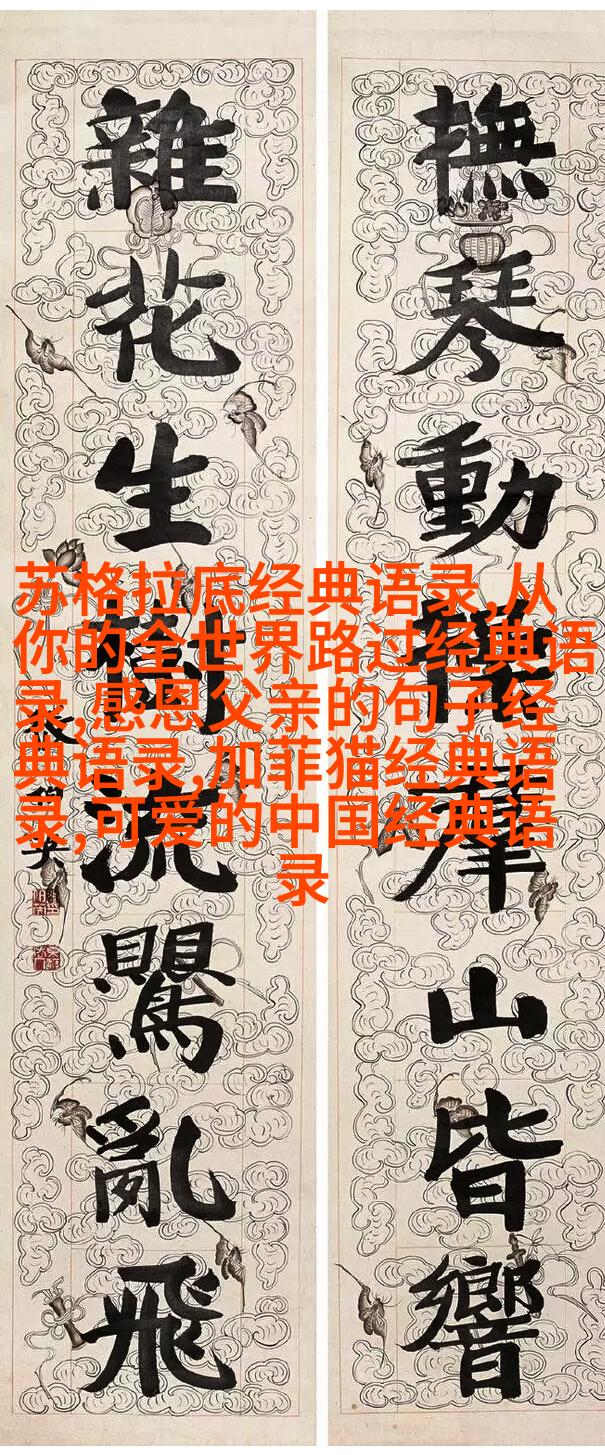 撫琴動羣山皆響
雜花生樹流鸎亂飛
苏格拉底经典语录,从
你的全世界路过经典语
录,感恩父亲的句子经
典语录,加菲猫经典语
录,可爱的中国经典语
录